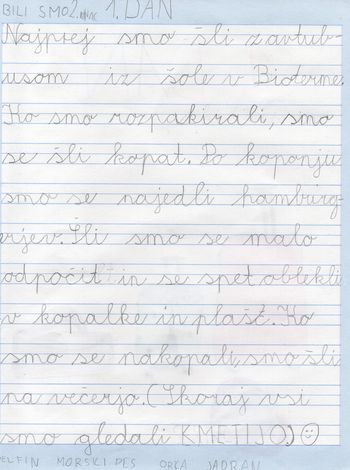 BILI SMO 2. 1. DAN
Najprej smo šli z avtub-
usom iz šole v Bioterme.
Ko smo rozpakirali, smo
se šli kopat. Po kopanju
smo se najedli hamburg-
erjev. Šli smo se malo
odpočit in se spet oblekli
v kopalke in plašč. Ko
smo se nakopali, smo šli
na večerjo. (Skoraj vsi
smo gledali KMETIJO.) ☺
DELFIN MORSKI PES ORKA JADRAN